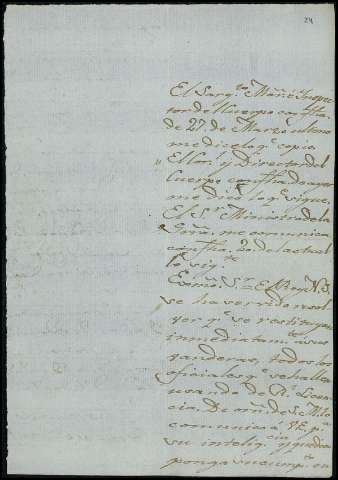 24
El Sarg.to Mor. é Inspec
tor del Cuerpo con fha.
de 27. de Marzo ultimo
me dice lo q.e copio.
El Cor.l y Director del
Cuerpo con fha de ayer
me dice lo q.e sigue.
El S.r Ministro de la
Grra. me comunica
con fha. 20. del actual
lo sig.te
Exmo. S.r = El Rey N. S.
se ha servido resol
ver q.e se restituyan
inmediatam.te á sus
banderas, todos los
oficiales q.e se hallen
usando de R.l Licen
cia. De orn. de S. M. lo
comunico á V.E. p.a
su intelig.cia y que dis
ponga su cump.to en